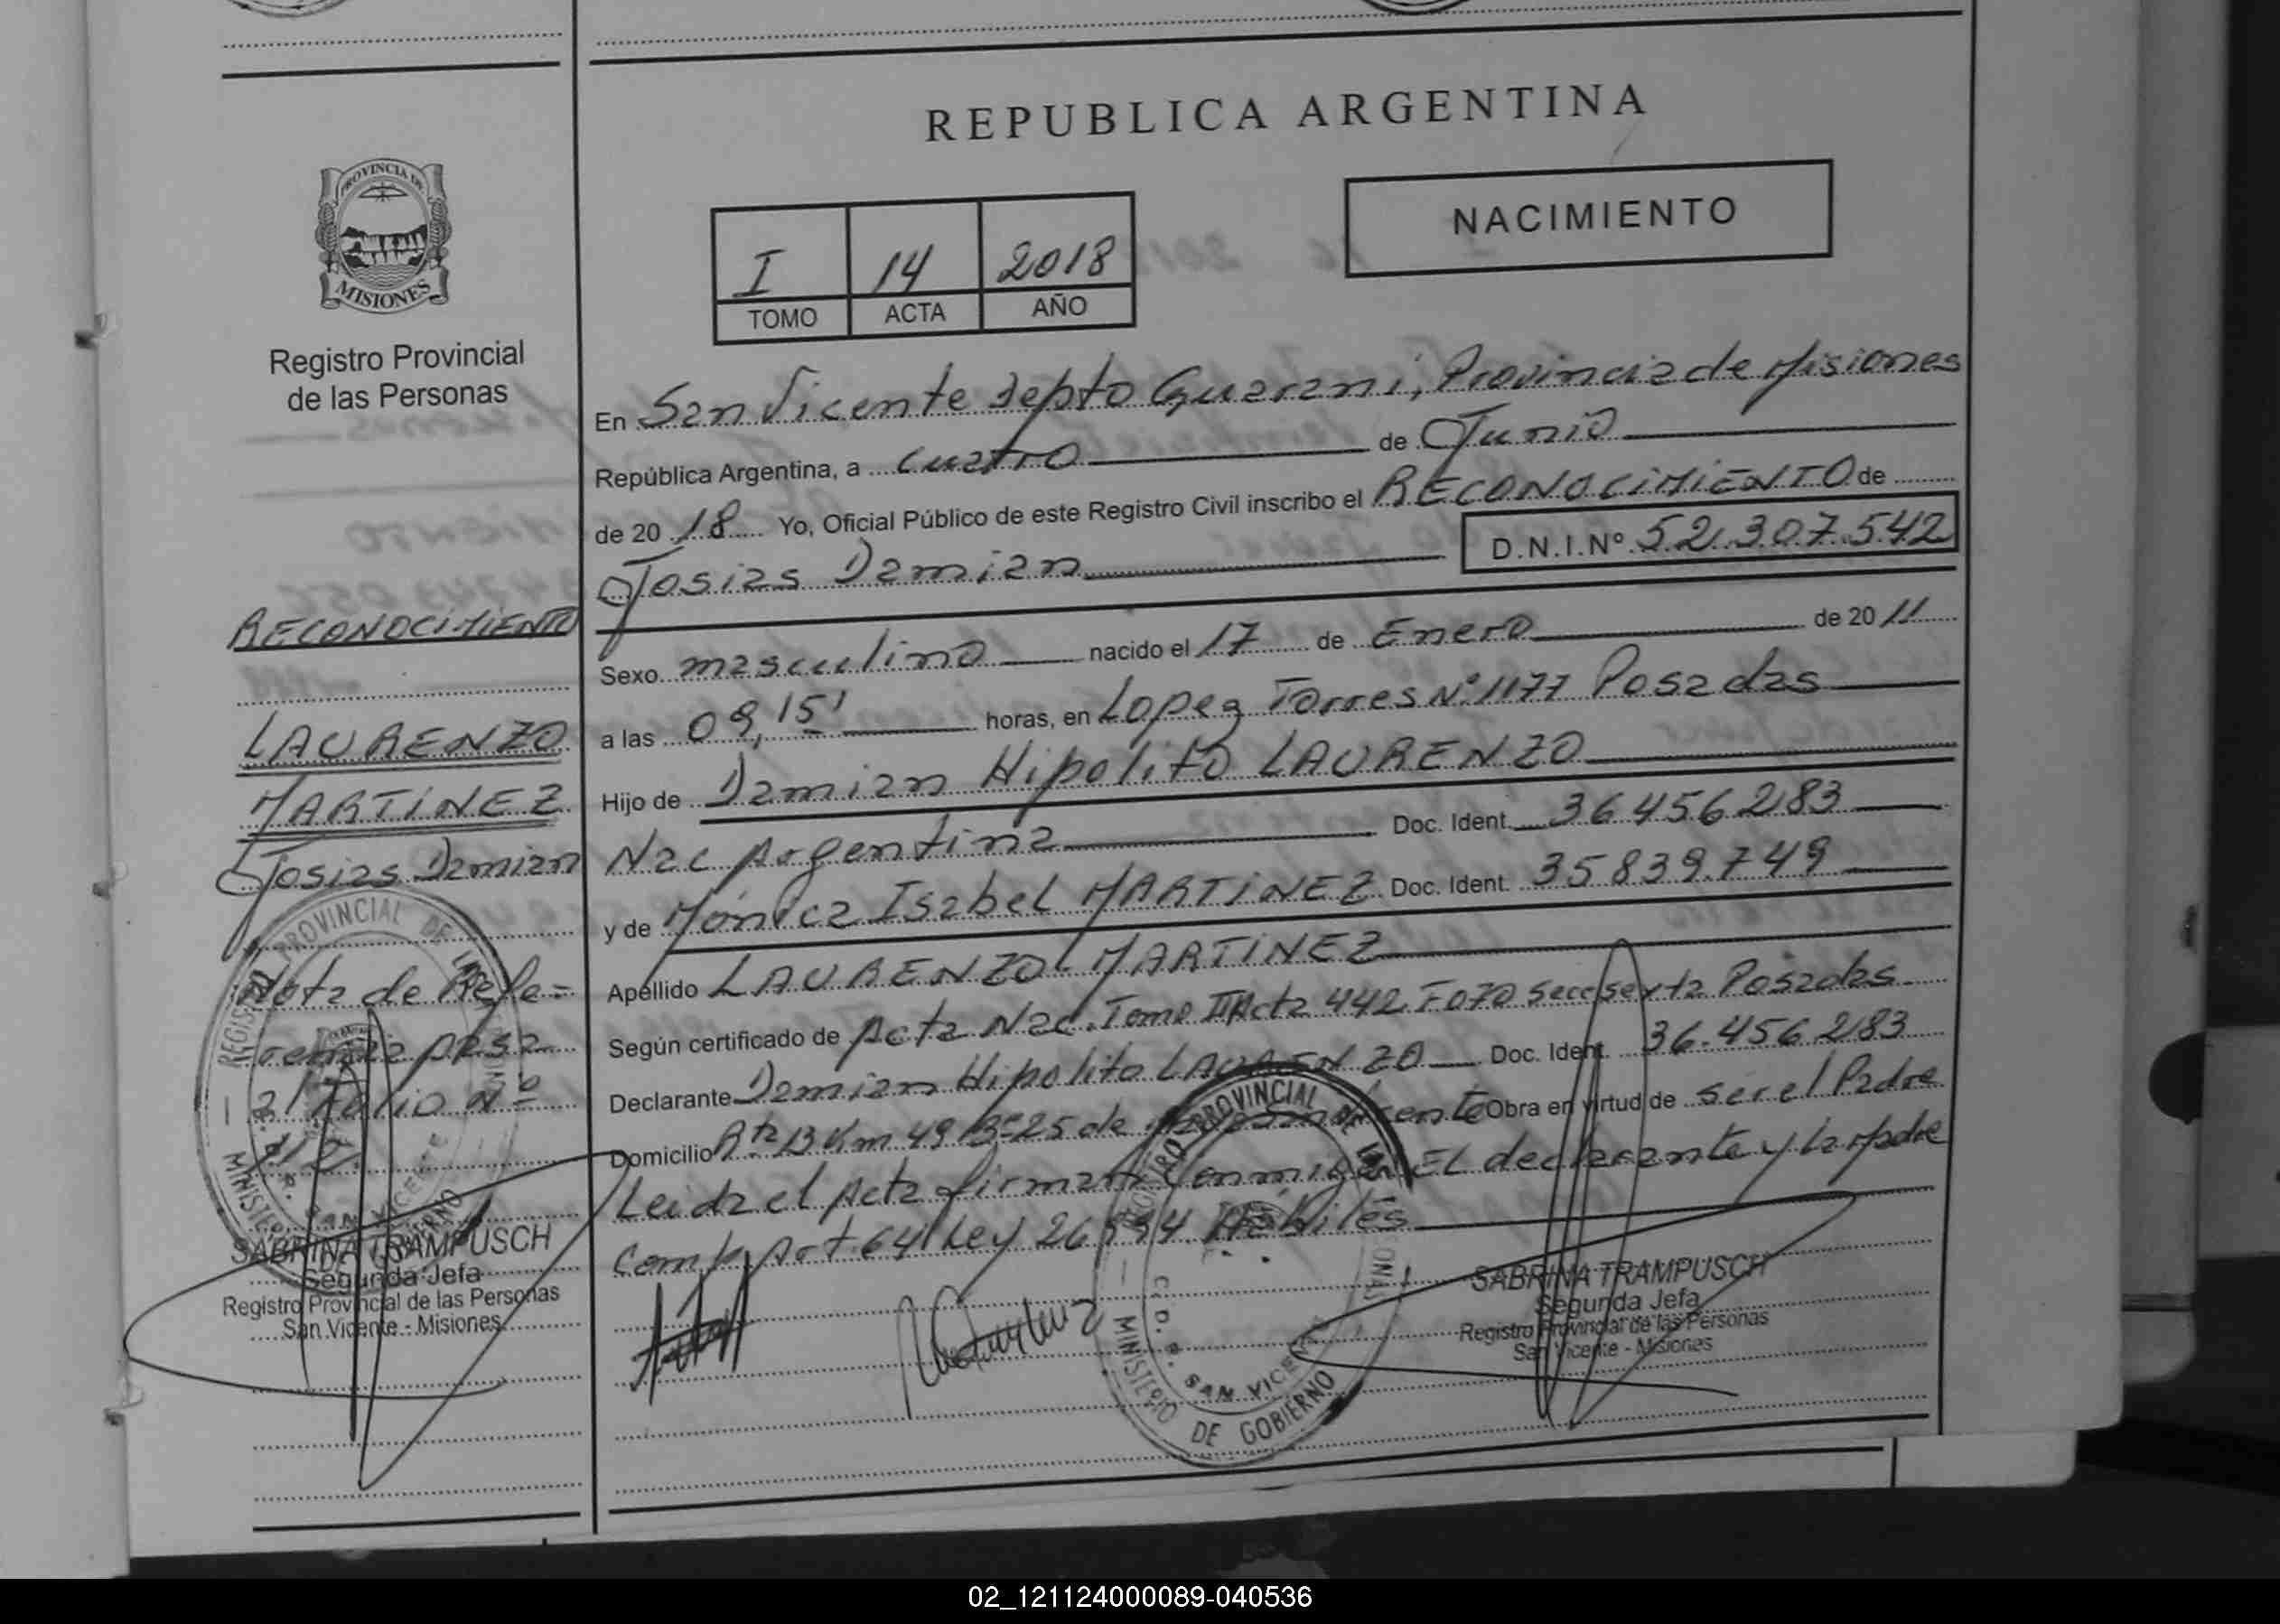 REPUBLICA ARGENTINA
NACIMIENTO
I 14 2018
TOMO ACTA AÑO
PROVINCIA DE
MISIONES
Registro Provincial
de las Personas
RECONOCIMIENTO
LAURENZO
MARTINEZ
Josias Damian
Nota de Refe=
rencia pasa
al Folio Nº
SABRINA TRAMPUSCH
Segunda Jefa
Registro Provincial de las Personas
San Vicente - Misiones
En San Vicente Depto Guarani, Provincia de Misiones
República Argentina, a cuatro de Junio
de 20 18 Yo, Oficial Público de este Registro Civil inscribo el RECONOCIMIENTO de
Josias Damian D.N.I.Nº 52.307.542
Sexo masculino nacido el 17 de Enero de 20 11
a las 09,15' horas, en Lopez Torres Nº 1177 Posadas
Hijo de Damian Hipolito LAURENZO
Nac Argentina Doc. Ident. 36456283
y de Mónica Isabel MARTINEZ Doc. Ident. 35839.749
Apellido LAURENZO MARTINEZ
Según certificado de Acta Nac. Tomo II Acta 442 Fo70 Secc sexta Posadas
Declarante Damian Hipolito LAURENZO Doc. Ident. 36.456283
Domicilio Rta 13 Km 49 Bº 25 de San Vicente Obra en virtud de ser el Padre
Leida el Acta firman Conmigo El declarante y la Madre
Comp. Art. 64 Ley 26994 Habiles
REGISTRO PROVINCIAL DE LAS PERSONAS
C.D.R. SAN VICENTE
MINISTERIO DE GOBIERNO
SABRINA TRAMPUSCH
Segunda Jefa
Registro Provincial de las Personas
San Vicente - Misiones
02_121124000089-040536